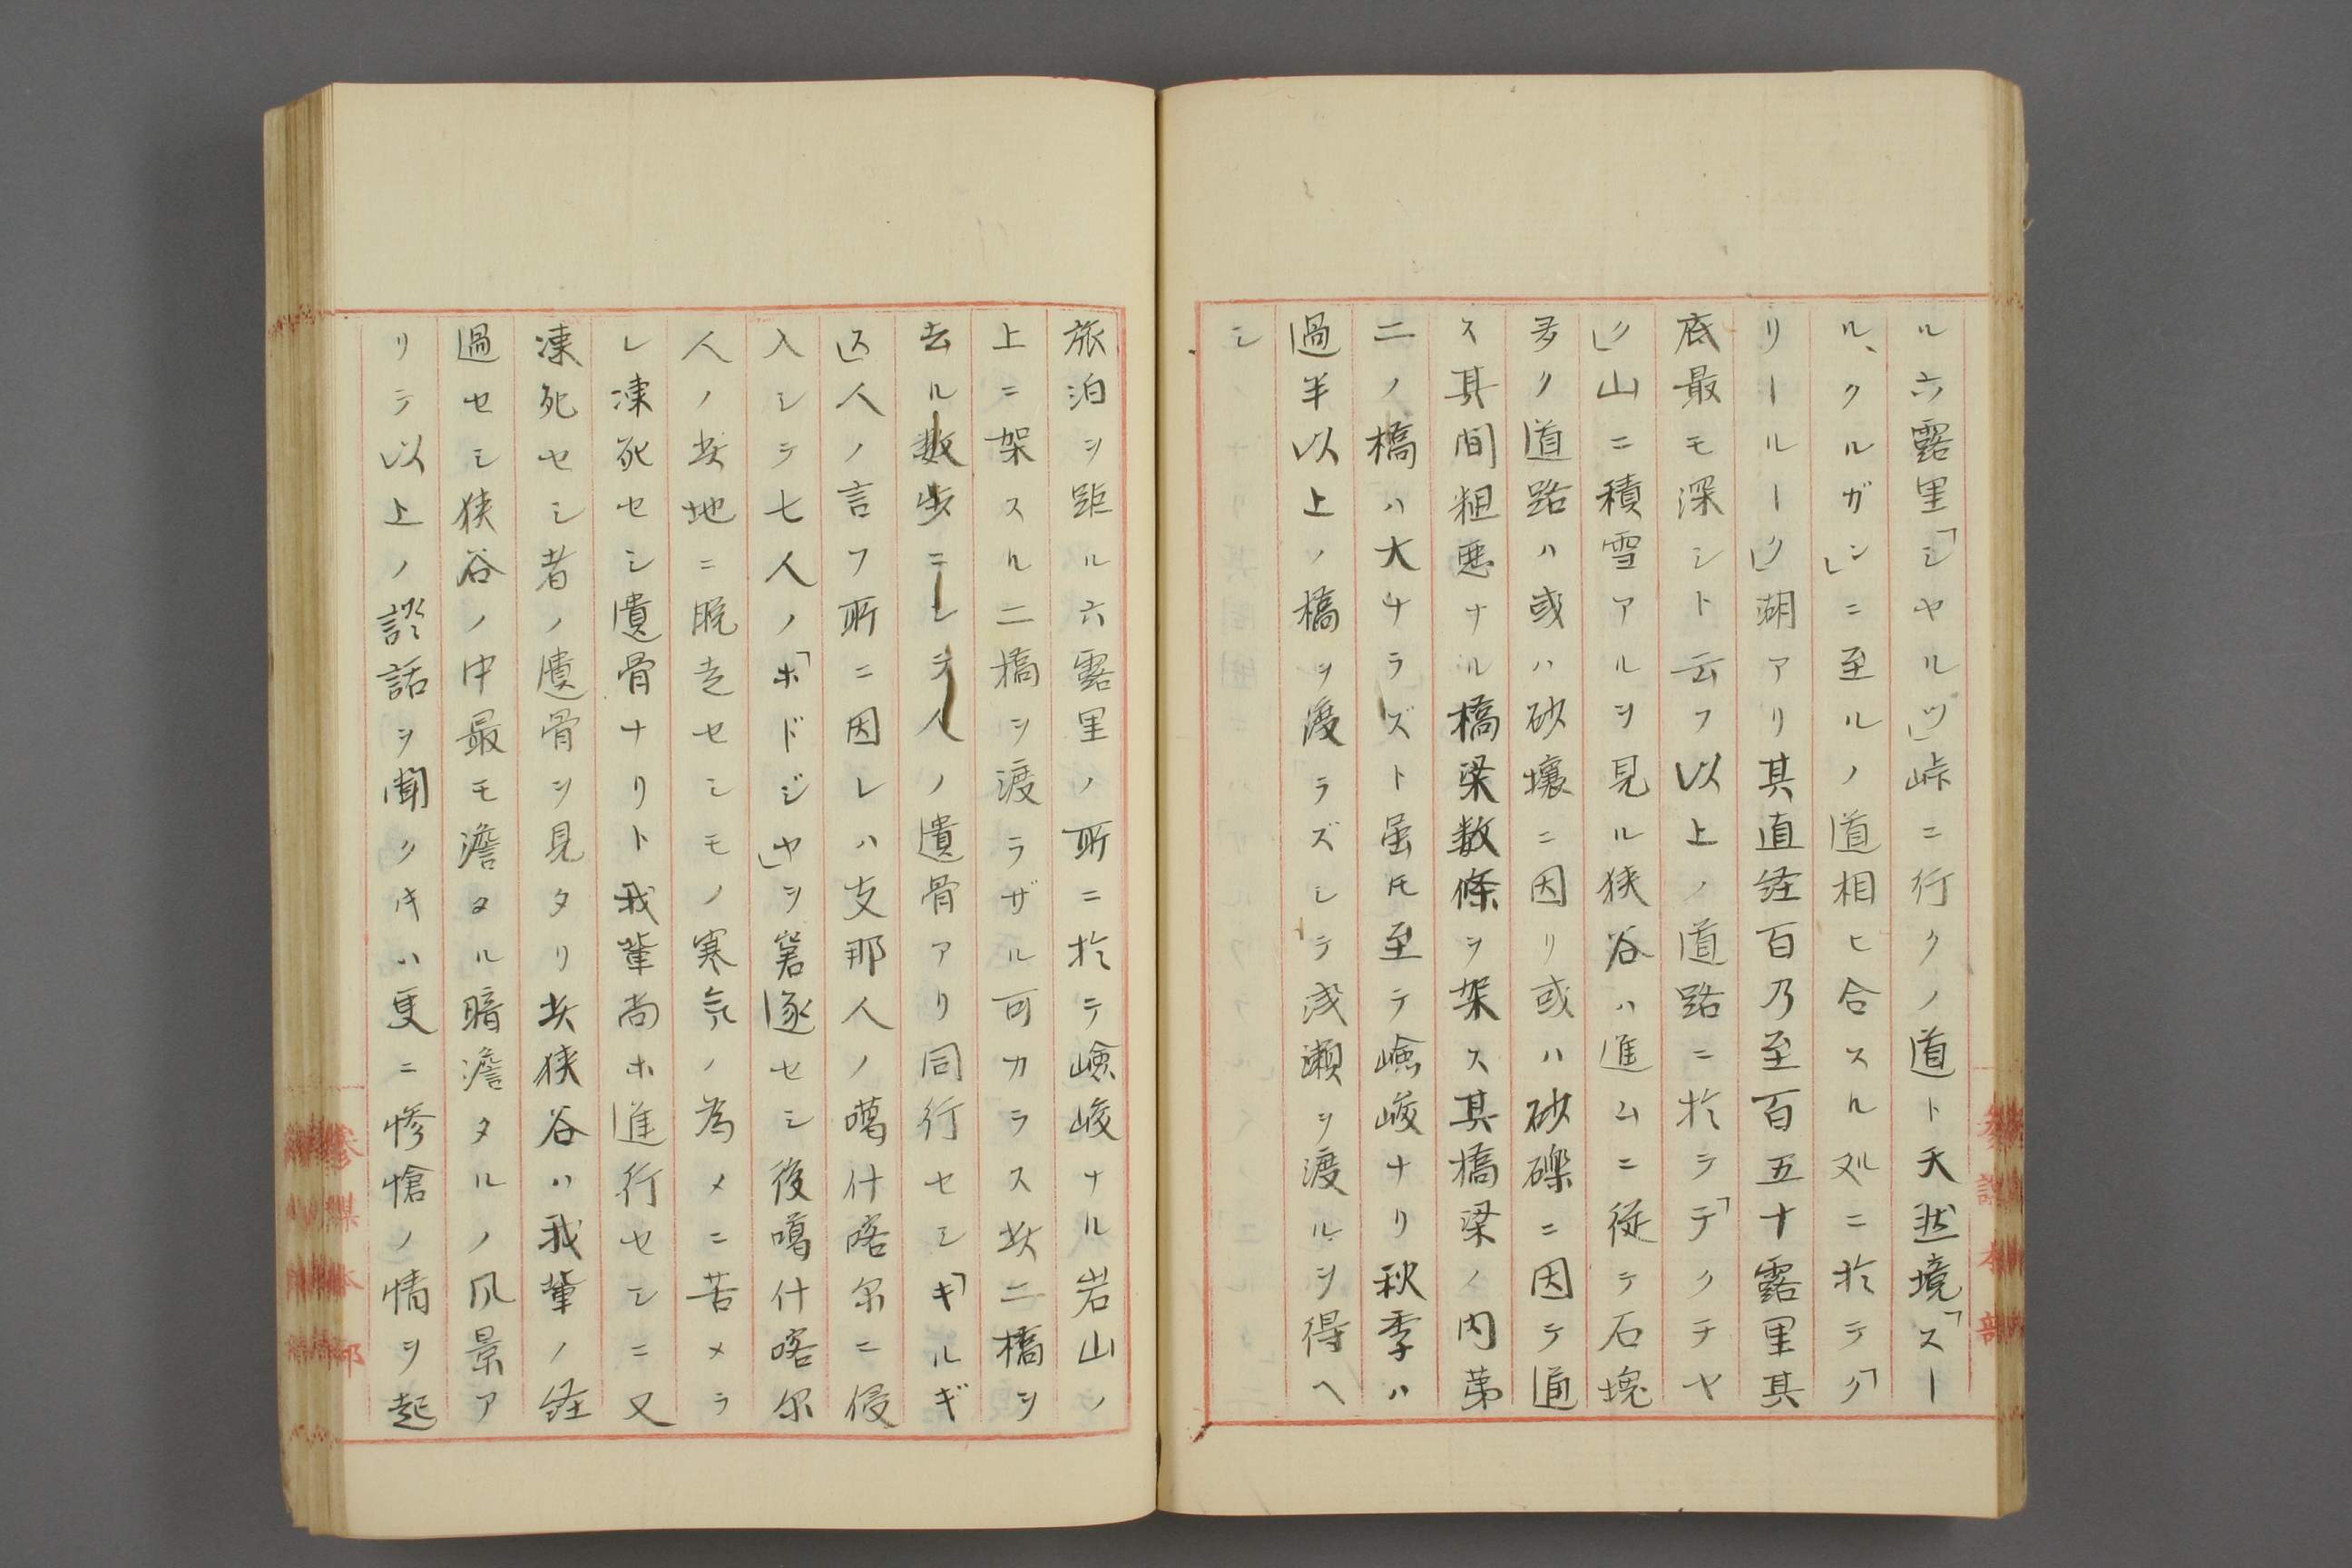 ル六露里「シヤルツ」峠ニ行クノ道ト天然境「スー
ル、クルガン」ニ至ルノ道相ヒ合スル処ニ於テ「ク
リールーク」湖アリ其直経百乃至百五十露里其
底最モ深シト云フ以上ノ道路ニ於テ「テクチヤ
ク」山ニ積雪アルヲ見ル狭谷ハ進ムニ従テ石塊
多ク道路ハ或ハ砂壤ニ因リ或ハ砂礫ニ因テ通
ス其間粗悪ナル橋梁数條ヲ架ス其橋梁ノ内第
二ノ橋ハ大ナラズト虽𪜈至テ嶮峻ナリ秋季ハ
過半以上ノ橋ヲ渡ラズシテ浅瀬ヲ渡ルヲ得ヘ
シ
旅泊ヲ距ル六露里ノ所ニ於テ嶮峻ナル岩山ノ
上ニ架スル二橋ヲ渡ラザル可カラス此二橋ヲ
去ル数歩ニシテ人ノ遺骨アリ同行セシ「キルギ
ス」人ノ言フ所ニ因レハ支那人ノ噶什喀尓ニ侵
入シテ七人ノ「ホドジヤ」ヲ窘逐セシ後噶什喀尓
人ノ此地ニ脱走セシモノ寒気ノ為メニ苦メラ
レ凍死セシ遺骨ナリト我輩尚ホ進行セシニ又
凍死セシ者ノ遺骨ヲ見タリ此狭谷ハ我輩ノ経
過セシ狭谷ノ中最モ澹タル暗澹タルノ風景ア
リテ以上ノ談話ヲ聞クキハ更ニ惨愴ノ情ヲ起
参謀本部
参謀本部